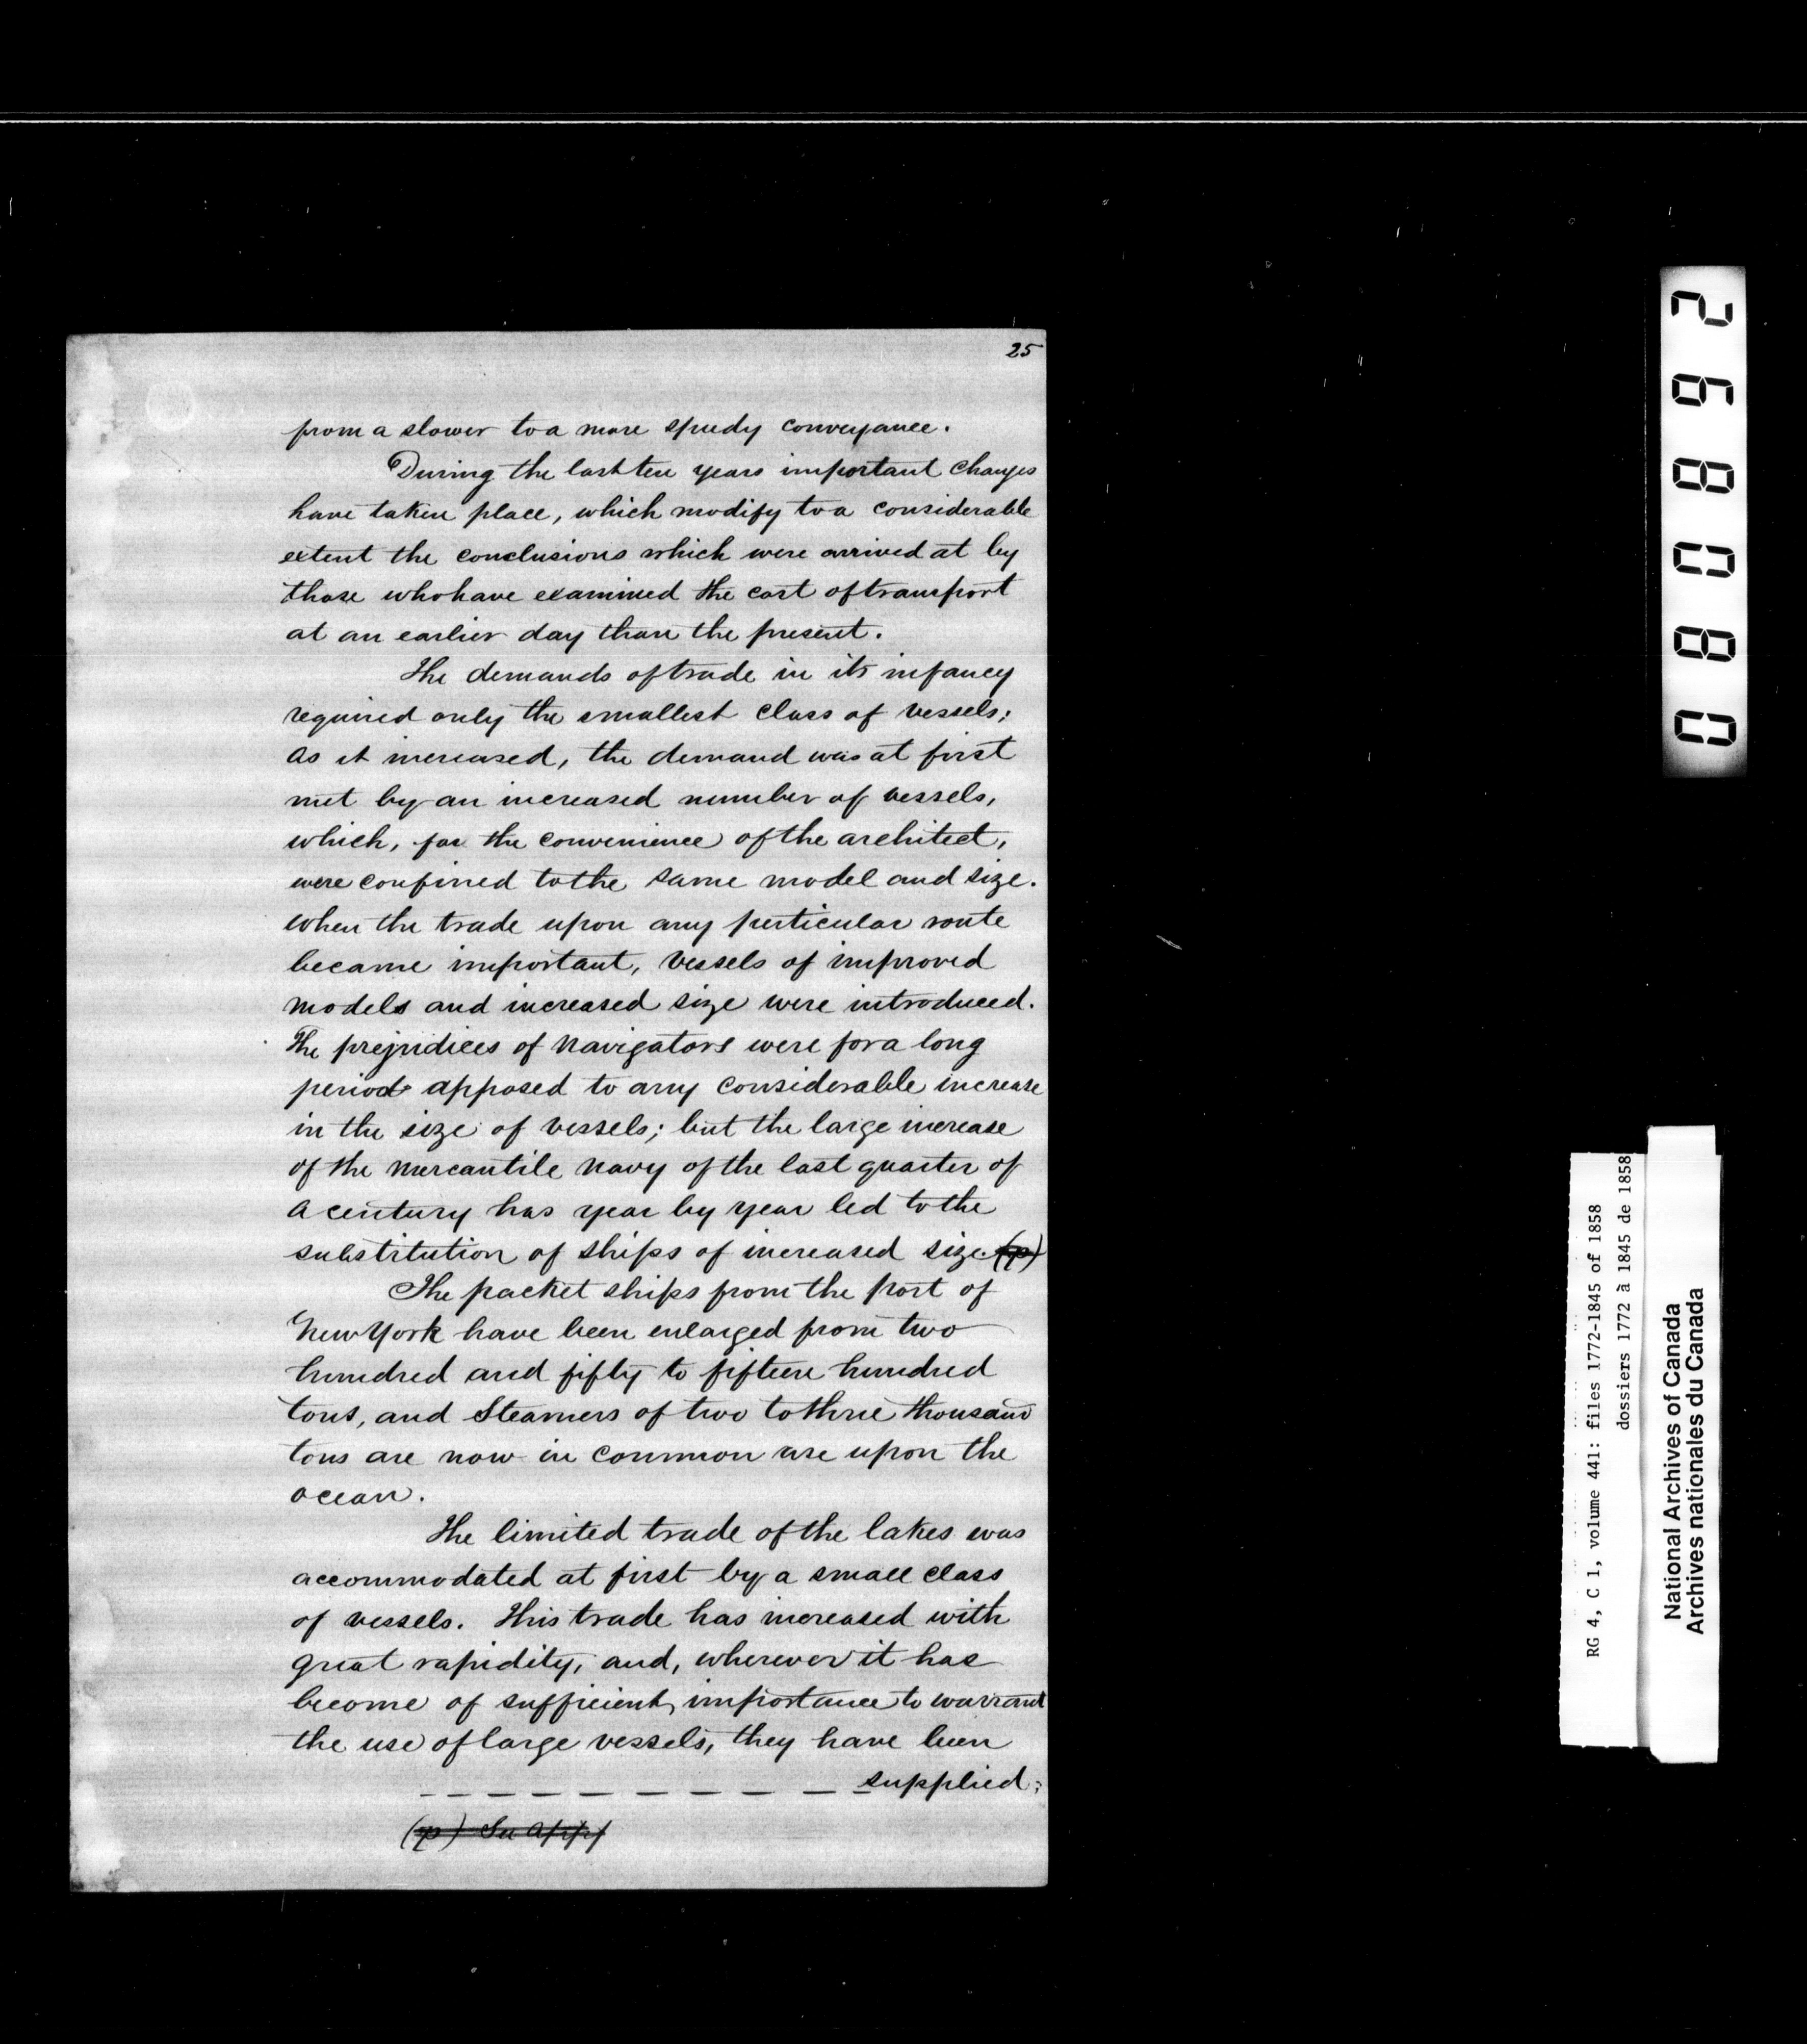 25
from a slower to a more speedy conveyance.
During the last ten years important changes
have taken place, which modify to a considerable
extent the conclusions which were arrived at by
those who have examined the cost of transport
at an earlier day than the present.
The demands of trade in its infancy
required only the smallest class of vessels;
as it increased, the demand was at first
met by an increased number of vessels,
which, for the convenience of the architect,
were confined to the same model and size.
When the trade upon any perticular route
became important, vessels of improved
models and increased size were introduced.
The prejudices of navigators were for a long
period apposed to any considerable increase
in the size of vessels; but the large increase
of the mercantile navy of the last quarter of
a century has year by year led to the
substitution of ships of increased size. (p)
The packet ships from the port of
New York have been enlarged from two
hundred and fifty to fifteen hundred
tons, and Steamers of two to three thousand
tons are now in common use upon the
ocean.
The limited trade of the lakes was
accommodated at first by a small class
of vessels. This trade has increased with
great rapidity, and, wherever it has
become of sufficient, importance to warrant
the use of large vessels, they have been
supplied;
(p) See Appx
268080
RG 4, C 1, volume 441: files 1772-1845 of 1858
dossiers 1772 à 1845 de 1858
National Archives of Canada
Archives nationales du Canada